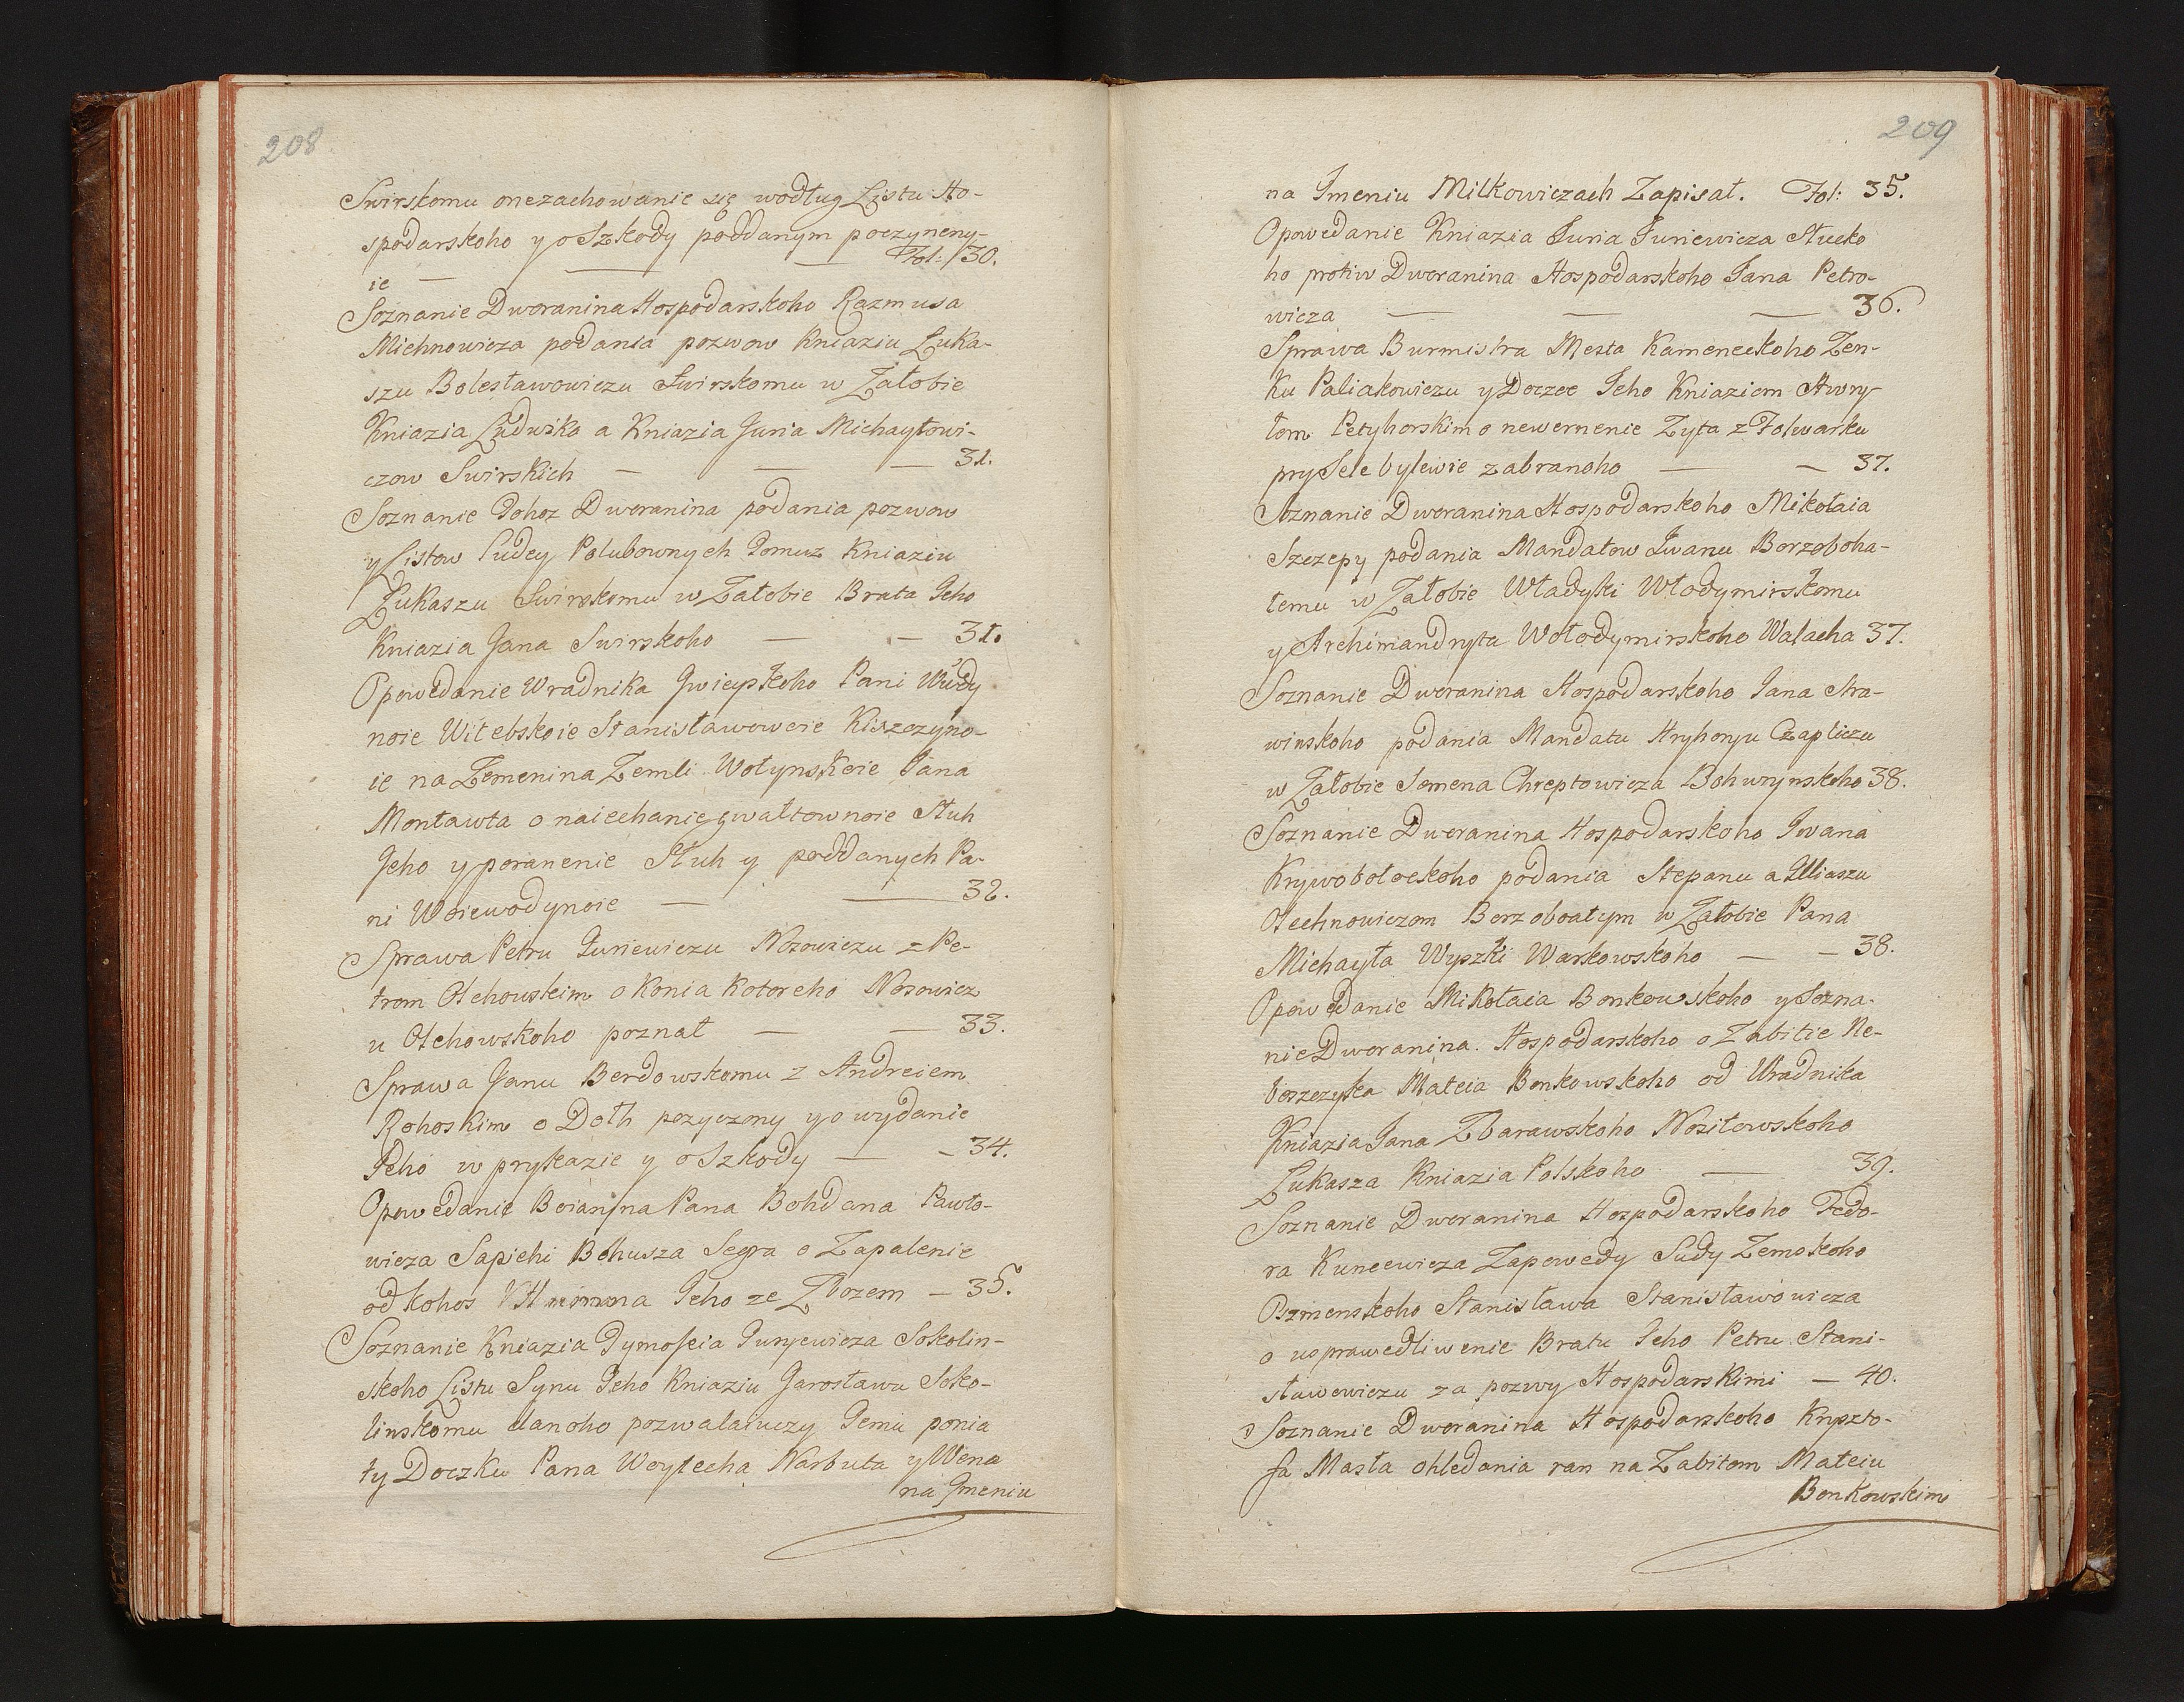 208
Swirskomu onezachowanie się wodług Listu Ho-
spodarskoho y o Szkody poddanym poczyneny-
ie — — — Fol: 30.
Soznanie Dworanina Hospodarskoho Razmusa
Michnowicza podania pozwow Kniaziu Łuka-
szu Bolesławowiczu Swirskomu w Załobie
Kniazia Ludwika a Kniazia Juria Michayłowi-
czow Swirskich — — — 31.
Soznanie Tohoz Dworanina podania pozwow
y Listow Sudey Polubownych Tomuz Kniaziu
Łukaszu Swirskomu w Załobie Brata Jeho
Kniazia Jana Swirskoho — — 31.
Opowedanie Wradnika Pani
noie Witebskoie Stanisławowoie Kiszczyno-
ie na Zemenina Zemli Wołynskoie Jana
Montawta o naiechanie gwałtownoie Sług
Jeho y poranenie Słuh y poddanych Pa-
ni Woiewodynoie — — 32.
Sprawa Petru Juriewiczu Nosowiczu z Pe-
trom Olchowskim o Konia kotoreho Nosowicz
u Olchowskoho poznał — — 33.
Sprawa Janu Berdowskomu z Andreiem
Rohoskim o Dolh pozyczony y o wydanie
Jeho w prykazie y o Szkody — — 34.
Opowedanie Boianina Pana Bohdana Pawło-
wicza Sapiehi Bohusza Segra o Zapalenie
od kohos Humna Jeho ze Zbozem — 35.
Soznanie Kniazia Tymofeia Juryewicza Sokolin-
skoho Listu Synu Jeho Kniaziu Jarosławu Soko-
linskomu danoho pozwalaiuczy Jemu ponia
ty Doczku Pana Woytecha Narbuta y Wena
na Jmeniu
209
na Jmeniu Milkowiczach Zapisał. Fol: 35.
Opowedanie Kniazia Juria Juriewicza Słucko
ho protiw Dworanina Hospodarskoho Jana Petro-
wicza — — — 36.
Sprawa Burmistra Mesta Kameneckoho Zen-
ku Paliakowiczu y Doczce Jeho Kniaziem Hawry
łom Petyhorskim o newernenie Zyta z Folwarku
pry Sele bylewie zabranoho — — 37.
Soznanie Dworanina Hospodarskoho Mikołaia
Szczepy podania Mandatow Iwanu Borzoboha-
temu w Załobie Władyki Włodymirskomu
y Archimandryta Wołodymirskoho Walacha 37.
Soznanie Dworanina Hospodarskoho Jana Stra-
winskoho podania Mandatu Hryhoryu Czapliczu
w Załobie Semena Chreptowicza Bohurynskoho 38.
Soznanie Dworanina Hospodarskoho Iwana
Krywobołockoho podania Stepanu a Illiaszu
Olechnowiczom Borzoboatym w Załobie Pana
Michayła Wyszki Warkowskoho — — 38.
Opowedanie Mikołaia Bonkowskoho y Sozna-
nie Dworanina Hospodarskoho o Zabitie Ne-
boszczyka Mateia Bonkowskoho od Uradnika
Kniazia Jana Zbarawskoho Nositowskoho
Łukasza Kniazia Polskoho — 39.
Soznanie Dworanina Hospodarskoho Fedo-
ra Kuncewicza Zapowedy Sudy Zemskoho
Oszmenskoho Stanisława Stanisławowicza
o usprawedliwenie Bratu Jeho Petru Stani-
sławowiczu za pozwy Hospodarskimi — 40.
Soznanie Dworanina Hospodarskoho Kryszto-
fa Masła ohledania ran na Zabitom Mateiu
Bonkowskim